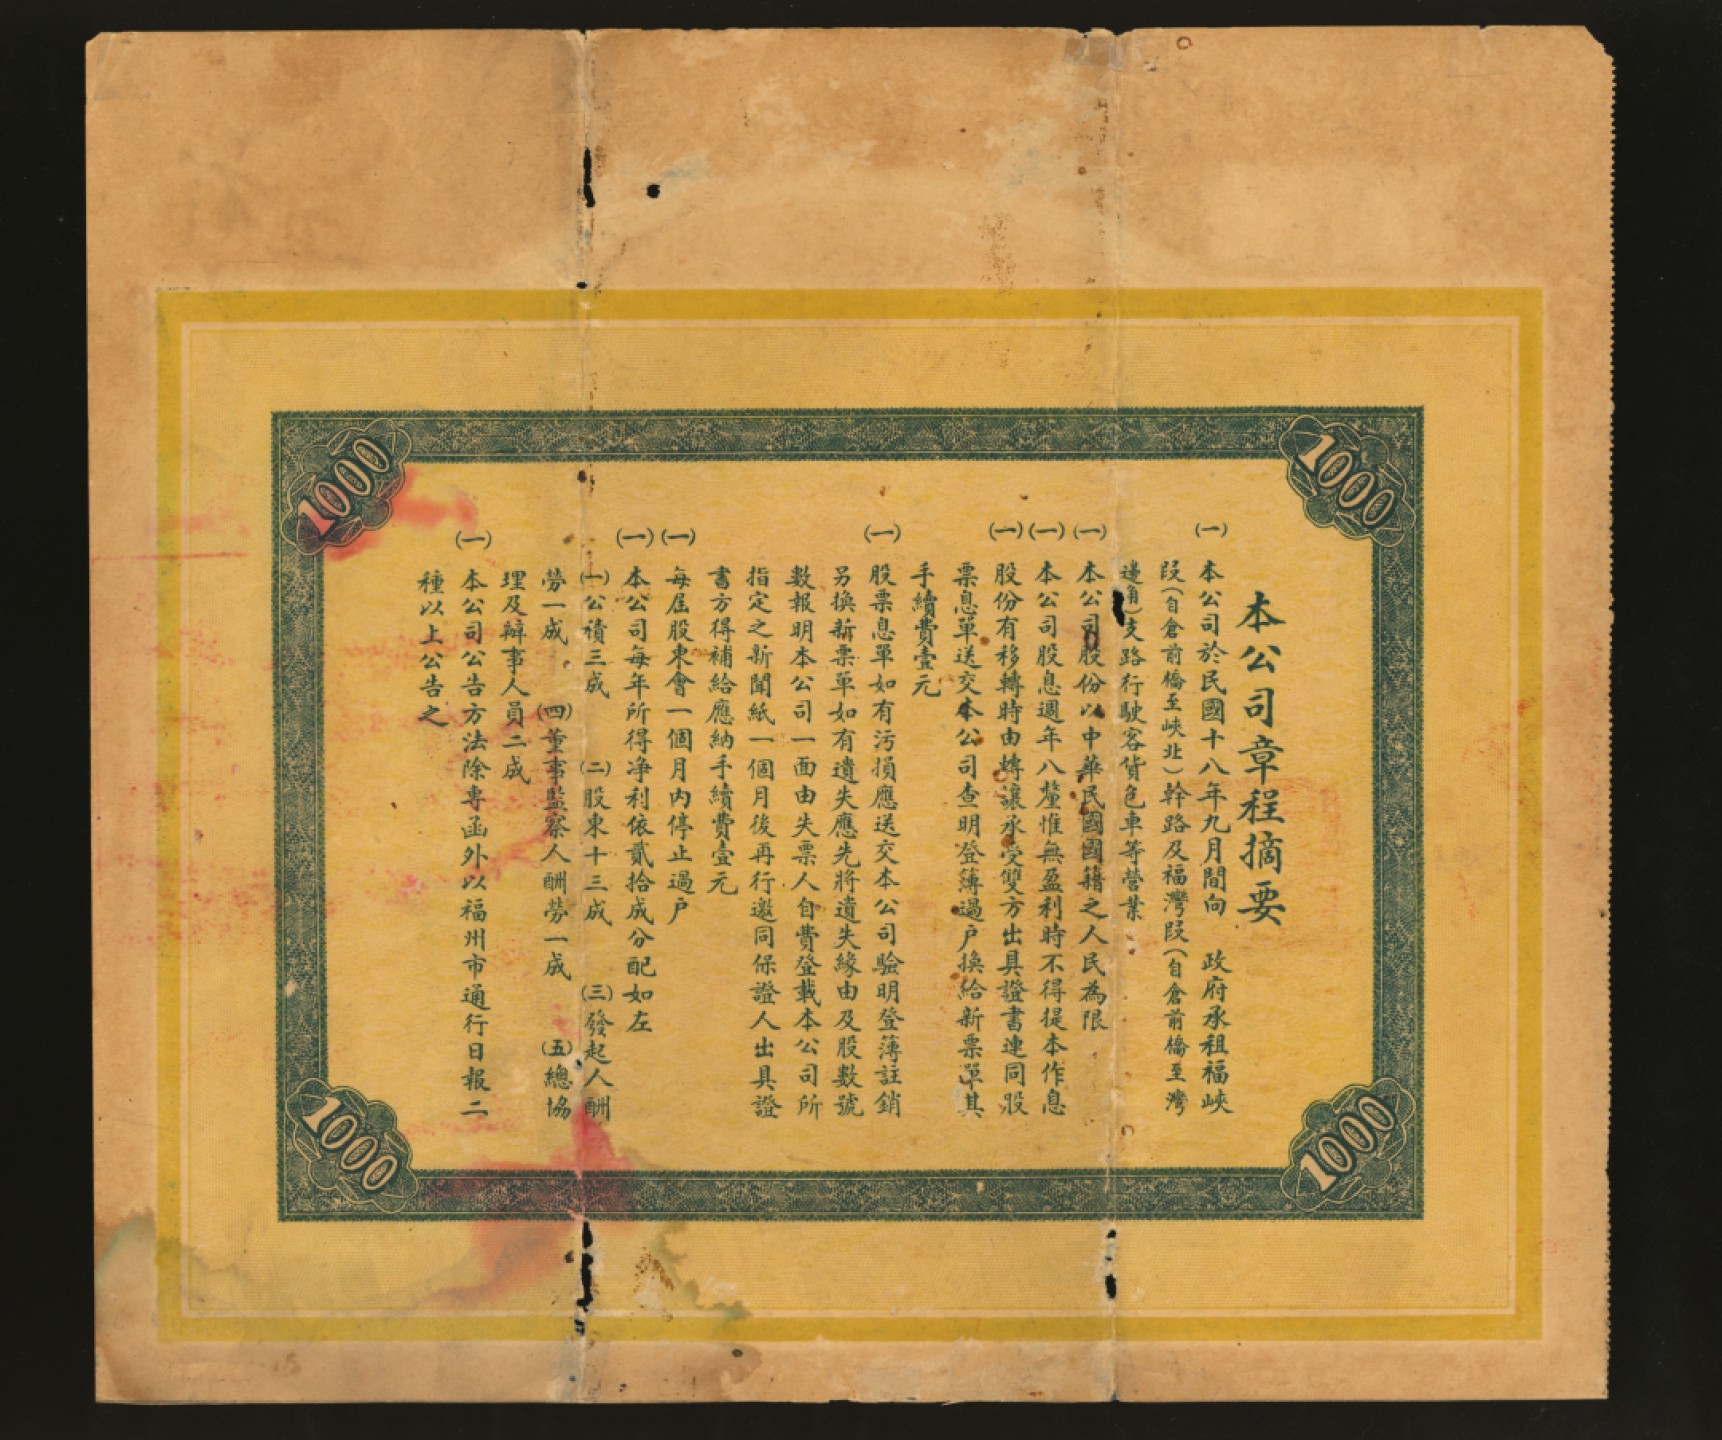 本公司章程摘要
(一) 本公司於民國十八年九月間向 政府承租福峽
段(自倉前橋至峽北)幹路及福灣段(自倉前橋至灣
邊角)支路行駛客貨包車等營業
(一) 本公司股份以中華民國國籍之人民為限
(一) 本公司股息週年八釐惟無盈利時不得提本作息
(一) 股份有移轉時由轉讓承受雙方出具證書連同股
票息單送交本公司查明登簿過户換給新票單其
手續費壹元
(一) 股票息單如有污損應送交本公司驗明登簿註銷
另換新票單如有遺失應先將遺失緣由及股數號
數報明本公司一面由失票人自費登載本公司所
指定之新聞紙一個月後再行邀同保證人出具證
書方得補給應納手續費壹元
(一) 每屆股東會一個月內停止過户
(一) 本公司每年所得净利依貳拾成分配如左
(一)公積三成 (二)股東十三成 (三)發起人酬
勞一成 (四)董事監察人酬勞一成 (五)總協
理及辦事人員二成
(一) 本公司公告方法除專函外以福州市通行日報二
種以上公告之
1000
1000
1000
1000